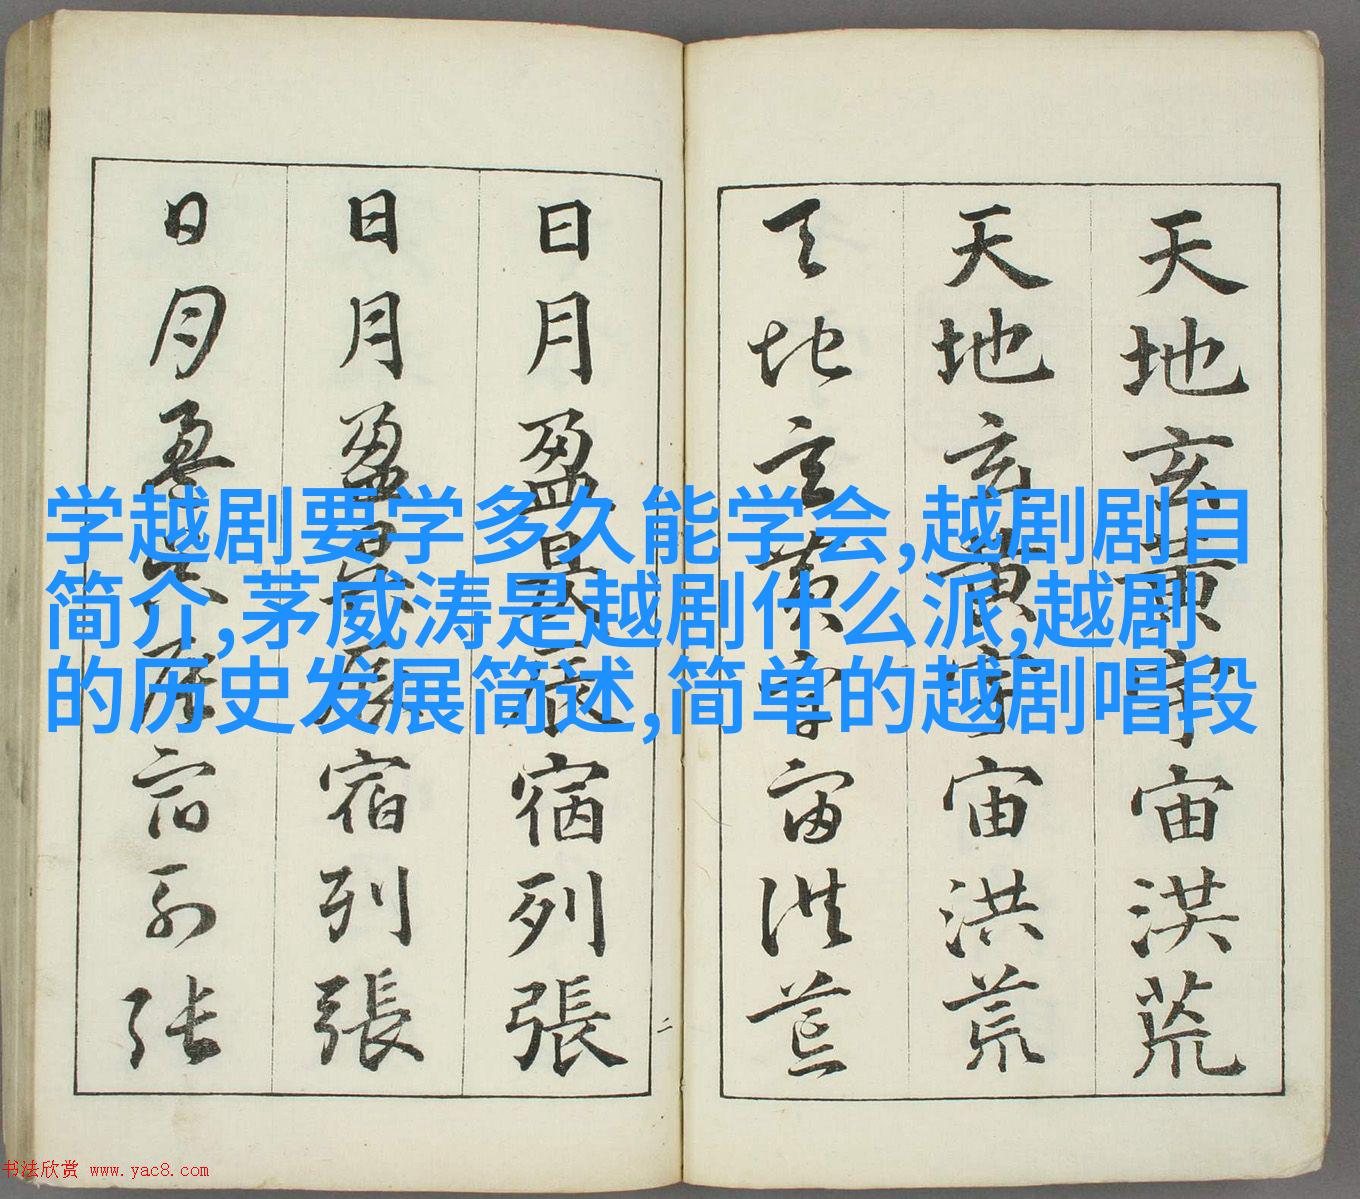 学越剧要学多久能学会,越剧剧目
简介,茅威涛是越剧什么派,越剧
的历史发展简述,简单的越剧唱段
天地玄黄宇宙洪荒
天地玄黄宇宙洪荒
天地玄黄宇宙洪荒
日月盈昃辰宿列張
日月盈昃辰宿列張
日月盈昃辰宿列张
二
书法欣赏 www.yac8.com